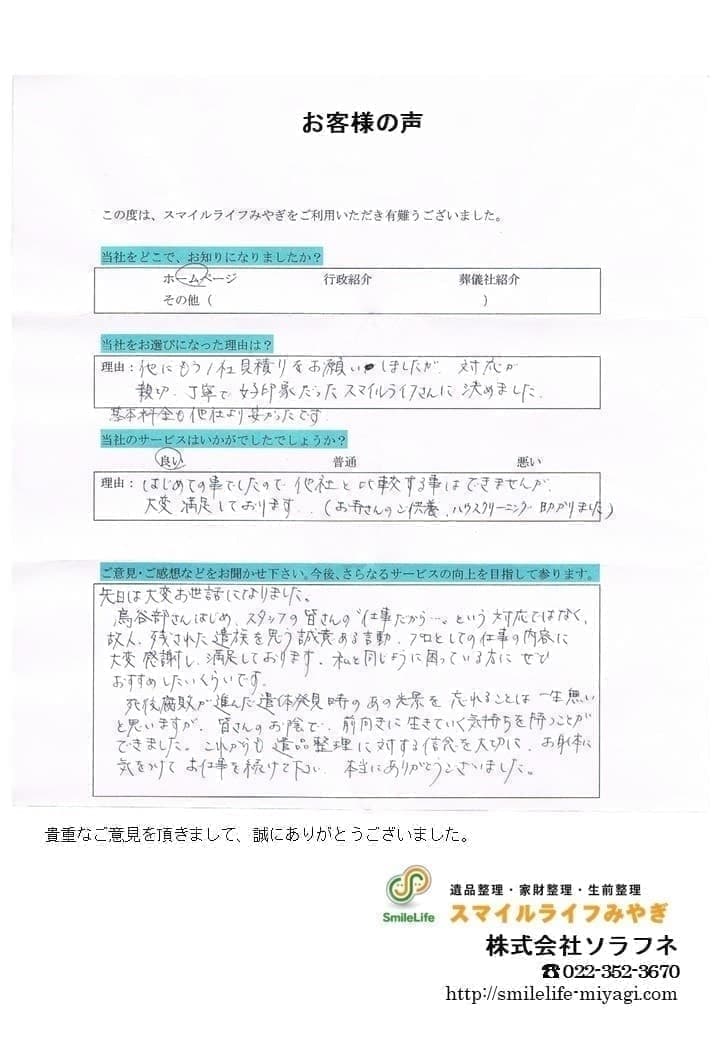 お客様の声
この度は、スマイルライフみやぎをご利用いただき有難うございました。
当社をどこで、お知りになりましたか?
ホームページ 行政紹介 葬儀社紹介
その他 ( )
当社をお選びになった理由は?
理由: 他にもう1社見積りをお願いしましたが、対応が
親切、丁寧で好印象だったスマイルライフさんに決めました。
基本料金も他社より安かったです。
当社のサービスはいかがでしたでしょうか?
良い 普通 悪い
理由: はじめての事でしたので他社と比較する事はできませんが、
大変満足しております。(お寺さんのご供養、ハウスクリーニング助かりました)
ご意見・ご感想などをお聞かせ下さい。今後、さらなるサービスの向上を目指して参ります。
先日は大変お世話になりました。
鳥谷部さんはじめ、スタッフの皆さんの"仕事だから…"という対応ではなく、
故人、残された遺族を思う誠責ある言動、プロとしての仕事の内容に
大変感謝し、満足しております。私と同じように困っている方にぜひ
おすすめしたいくらいです。
死後腐敗が進んだ遺体発見時のあの光景を忘れることは一生無い
と思いますが、皆さんのお陰で、前向きに生きていく気持ちを持つことが
できました。これからも遺品整理に対する信念を大切に、お身体に
気をつけてお仕事を続けて下さい。本当にありがとうございました。
貴重なご意見を頂きまして、誠にありがとうございました。
SmileLife
遺品整理・家財整理・生前整理
スマイルライフみやぎ
株式会社ソラフネ
☎022-352-3670
http://smilelife-miyagi.com